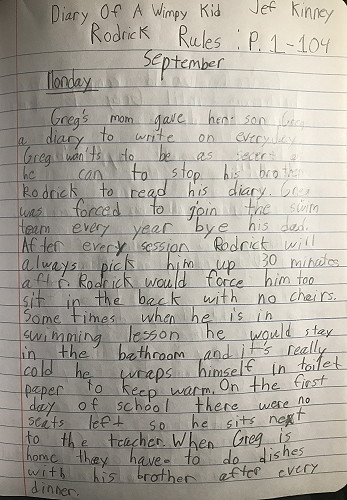 Diary Of A Wimpy Kid Jef Kinney
Rodrick Rules : P. 1-104
September
Monday
Greg's mom gave her son Greg
a diary to write on everyday
Greg wan'ts to be as secret
he can to stop his brother
Rodrick to read his diary. Greg
was forced to join the swim
team every year bye his dad.
After every session Rodrick will
always pick him up 30 minutes
after. Rodrick would force him too
sit in the back with no chairs.
Some times when he is in
swimming lesson he would stay
in the bathroom and it's really
cold he wraps himself in toilet
paper to keep warm. On the first
day of school there were no
seats left so he sits next
to the teacher. When Greg is
home they have to do dishes
with his brother after every
dinner.